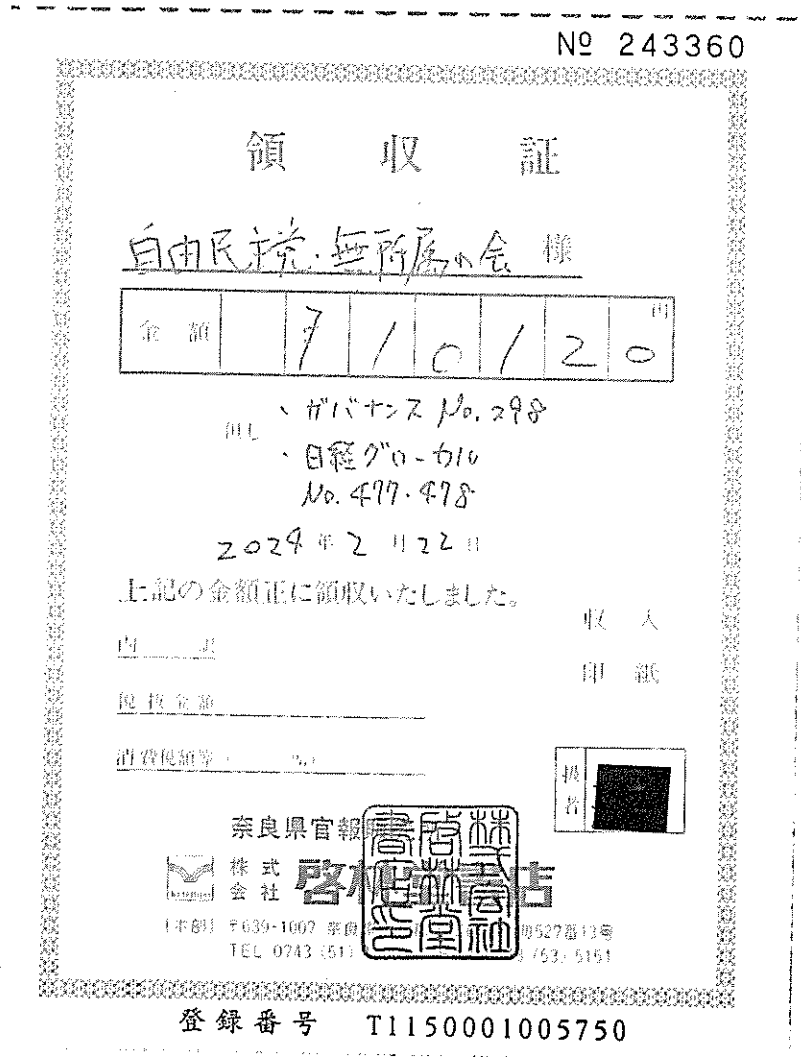 № 243360
領収証
自由民主党・無所属の会 様
金額 7 1 0 1 2 0 円
但し ・ガバナンス No.298
・日経グローカル
No.477・478
2024年2月22日
上記の金額正に領収いたしました。
収入
印紙
内訳
税抜金額
消費税額等( %)
扱者
奈良県官報
株式会社 啓林堂書店
株式会社啓林堂書店印
〒639-1007 527番13号
TEL 0743 (51) (53) 5151
登録番号 T1150001005750